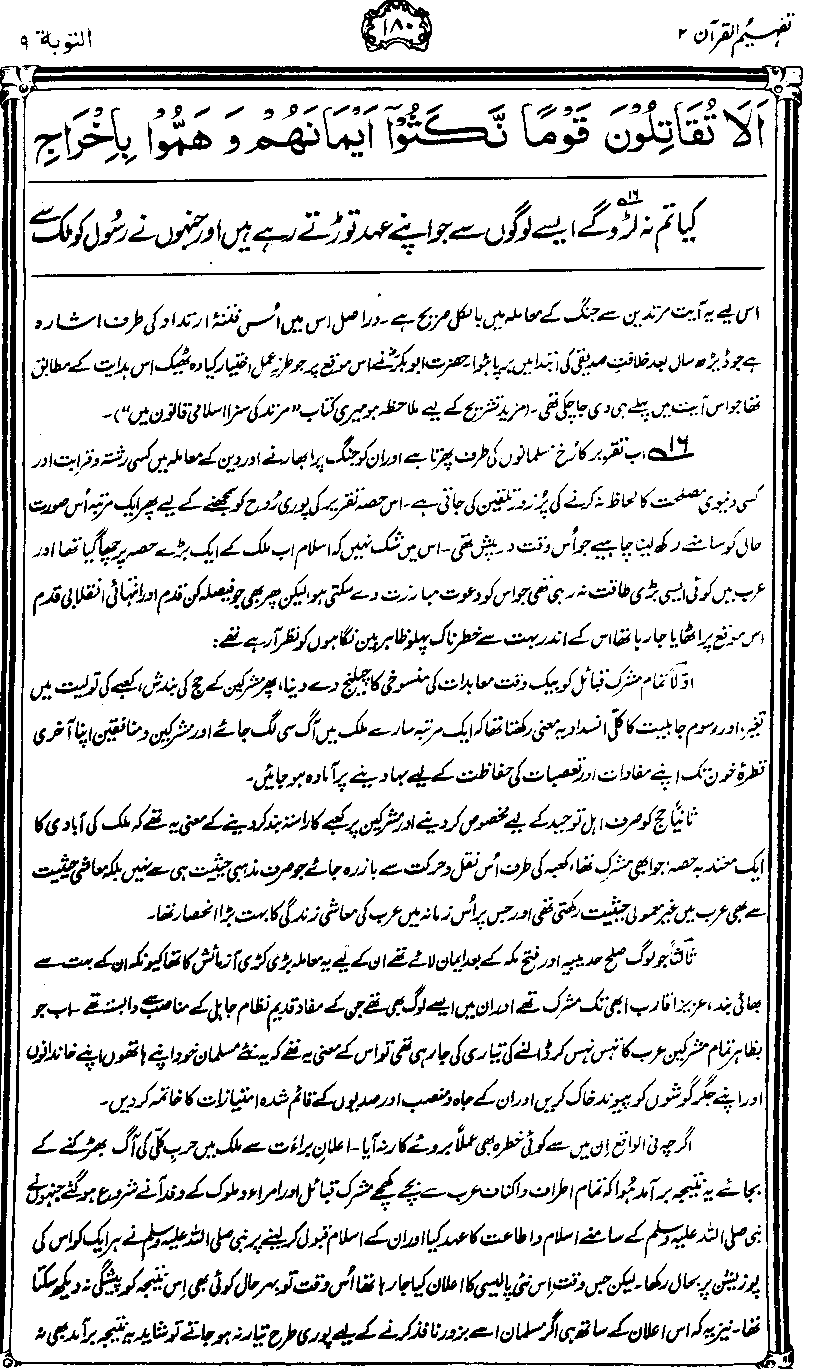 تفہیم القرآن ۲
۱۸۰
التوبۃ ۹
اَلَا تُقَاتِلُوْنَ قَوْمًا نَّكَثُوْۤا اَيْمَانَهُمْ وَ هَمُّوْا بِاِخْرَاجِ
کیا تم نہ لڑو گے۱۶ ایسے لوگوں سے جو اپنے عہد توڑتے رہے ہیں اور جنہوں نے رسُول کو ملک سے
اس لیے یہ آیت مرتدین سے جنگ کے معاملہ میں بالکل صریح ہے۔ دراصل اس میں اُس فتنۂ ارتداد کی طرف اشارہ
ہے جو ڈیڑھ سال بعد خلافتِ صدیقی کی ابتدا میں برپا ہُوا۔ حضرت ابوبکرؓ نے اس موقع پر جو طرزِ عمل اختیار کیا وہ ٹھیک اس ہدایت کے مطابق
تھا جو اس آیت میں پہلے ہی دی جا چکی تھی۔ (مزید تشریح کے لیے ملاحظہ ہو میری کتاب “مرتد کی سزا اسلامی قانون میں”)۔
۱۶ اب تقریر کا رُخ مسلمانوں کی طرف پھرتا ہے اور ان کو جنگ پر ابھارنے اور دین کے معاملہ میں کسی رشتہ و قرابت اور
کسی دنیوی مصلحت کا لحاظ نہ کرنے کی پُر زور تلقین کی جاتی ہے۔ اس حصہ تقریر کی پوری رُوح کو سمجھنے کے لیے پھر ایک مرتبہ اُس صورت
حال کو سامنے رکھ لینا چاہیے جو اُس وقت درپیش تھی۔ اس میں شک نہیں کہ اسلام اب ملک کے ایک بڑے حصہ پر چھا گیا تھا اور
عرب میں کوئی ایسی بڑی طاقت نہ رہی تھی جو اس کو دعوتِ مبارزت دے سکتی ہو، لیکن پھر بھی جو فیصلہ کن قدم اور انتہائی انقلابی قدم
اس موقع پر اٹھایا جا رہا تھا اس کے اندر بہت سے خطرناک پہلو ظاہر بین نگاہوں کو نظر آ رہے تھے:
اوّلاً تمام مشرک قبائل کو بیک وقت معاہدات کی منسوخی کا چیلنج دے دینا، پھر مشرکین کے حج کی بندش، کعبے کی تولیت میں
تغیر، اور رسومِ جاہلیت کا کلی انسداد یہ معنی رکھتا تھا کہ ایک مرتبہ سارے ملک میں آگ سی لگ جائے اور مشرکین و منافقین اپنا آخری
قطرۂ خون تک اپنے مفادات اور تعصبات کی حفاظت کے لیے بہا دینے پر آمادہ ہو جائیں۔
ثانیاً حج کو صرف اہلِ توحید کے لیے مخصوص کر دینے اور مشرکین پر کعبے کا راستہ بند کر دینے کے معنی یہ تھے کہ ملک کی آبادی کا
ایک معتد بہ حصہ، جو ابھی مشرک تھا، کعبہ کی طرف اُس نقل و حرکت سے باز رہ جائے جو صرف مذہبی حیثیت ہی سے نہیں بلکہ معاشی حیثیت
سے بھی عرب میں غیر معمولی حیثیت رکھتی تھی اور جس پر اُس زمانہ میں عرب کی معاشی زندگی کا بہت بڑا انحصار تھا۔
ثالثاً جو لوگ صلح حدیبیہ اور فتح مکہ کے بعد ایمان لائے تھے ان کے لیے یہ معاملہ بڑی کڑی آزمائش کا تھا کیونکہ ان کے بہت سے
بھائی بند، عزیز اقارب ابھی تک مشرک تھے اور ان میں ایسے لوگ بھی تھے جن کے مفاد قدیم نظام جاہلی کے مناصب سے وابستہ تھے۔ اب جو
بظاہر تمام مشرکینِ عرب کا تہس نہس کر ڈالنے کی تیاری کی جا رہی تھی تو اس کے معنی یہ تھے کہ یہ نئے مسلمان خود اپنے ہاتھوں اپنے خاندانوں
اور اپنے جگر گوشوں کو پیوندِ خاک کریں اور ان کے جاہ و منصب اور صدیوں کے قائم شدہ امتیازات کا خاتمہ کر دیں۔
اگرچہ فی الواقع اِن میں سے کوئی خطرہ بھی عملاً بروئے کار نہ آیا۔ اعلانِ براءت سے ملک میں حربِ کلی کی آگ بھڑکنے کے
بجائے یہ نتیجہ برآمد ہُوا کہ تمام اطراف و اکناف عرب سے بچے کھچے مشرک قبائل اور امراء و ملوک کے وفد آنے شروع ہو گئے جنہوں نے
نبی صلی اللہ علیہ وسلم کے سامنے اسلام و اطاعت کا عہد کیا اور ان کے اسلام قبول کر لینے پر نبی صلی اللہ علیہ وسلم نے ہر ایک کو اس کی
پوزیشن پر بحال رکھا۔ لیکن جس وقت اِس نئی پالیسی کا اعلان کیا جا رہا تھا اُس وقت تو بہرحال کوئی بھی اِس نتیجہ کو پیشگی نہ دیکھ سکتا
تھا۔ نیز یہ کہ اس اعلان کے ساتھ ہی اگر مسلمان اسے بزور نافذ کرنے کے لیے پوری طرح تیار نہ ہو جاتے تو شاید یہ نتیجہ برآمد بھی نہ